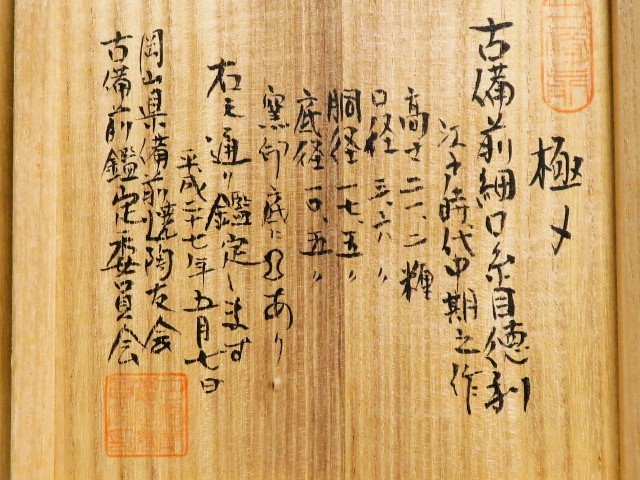 極メ
古備前細口糸目徳利
江戸時代中期之作
高さ 二一、二 糎
口径 三、六 〃
胴径 一七、五 〃
底径 一〇、五 〃
窯印 底ニ あり
右之通り鑑定します
平成二十七年五月七日
岡山県備前焼陶友会
古備前鑑定委員会